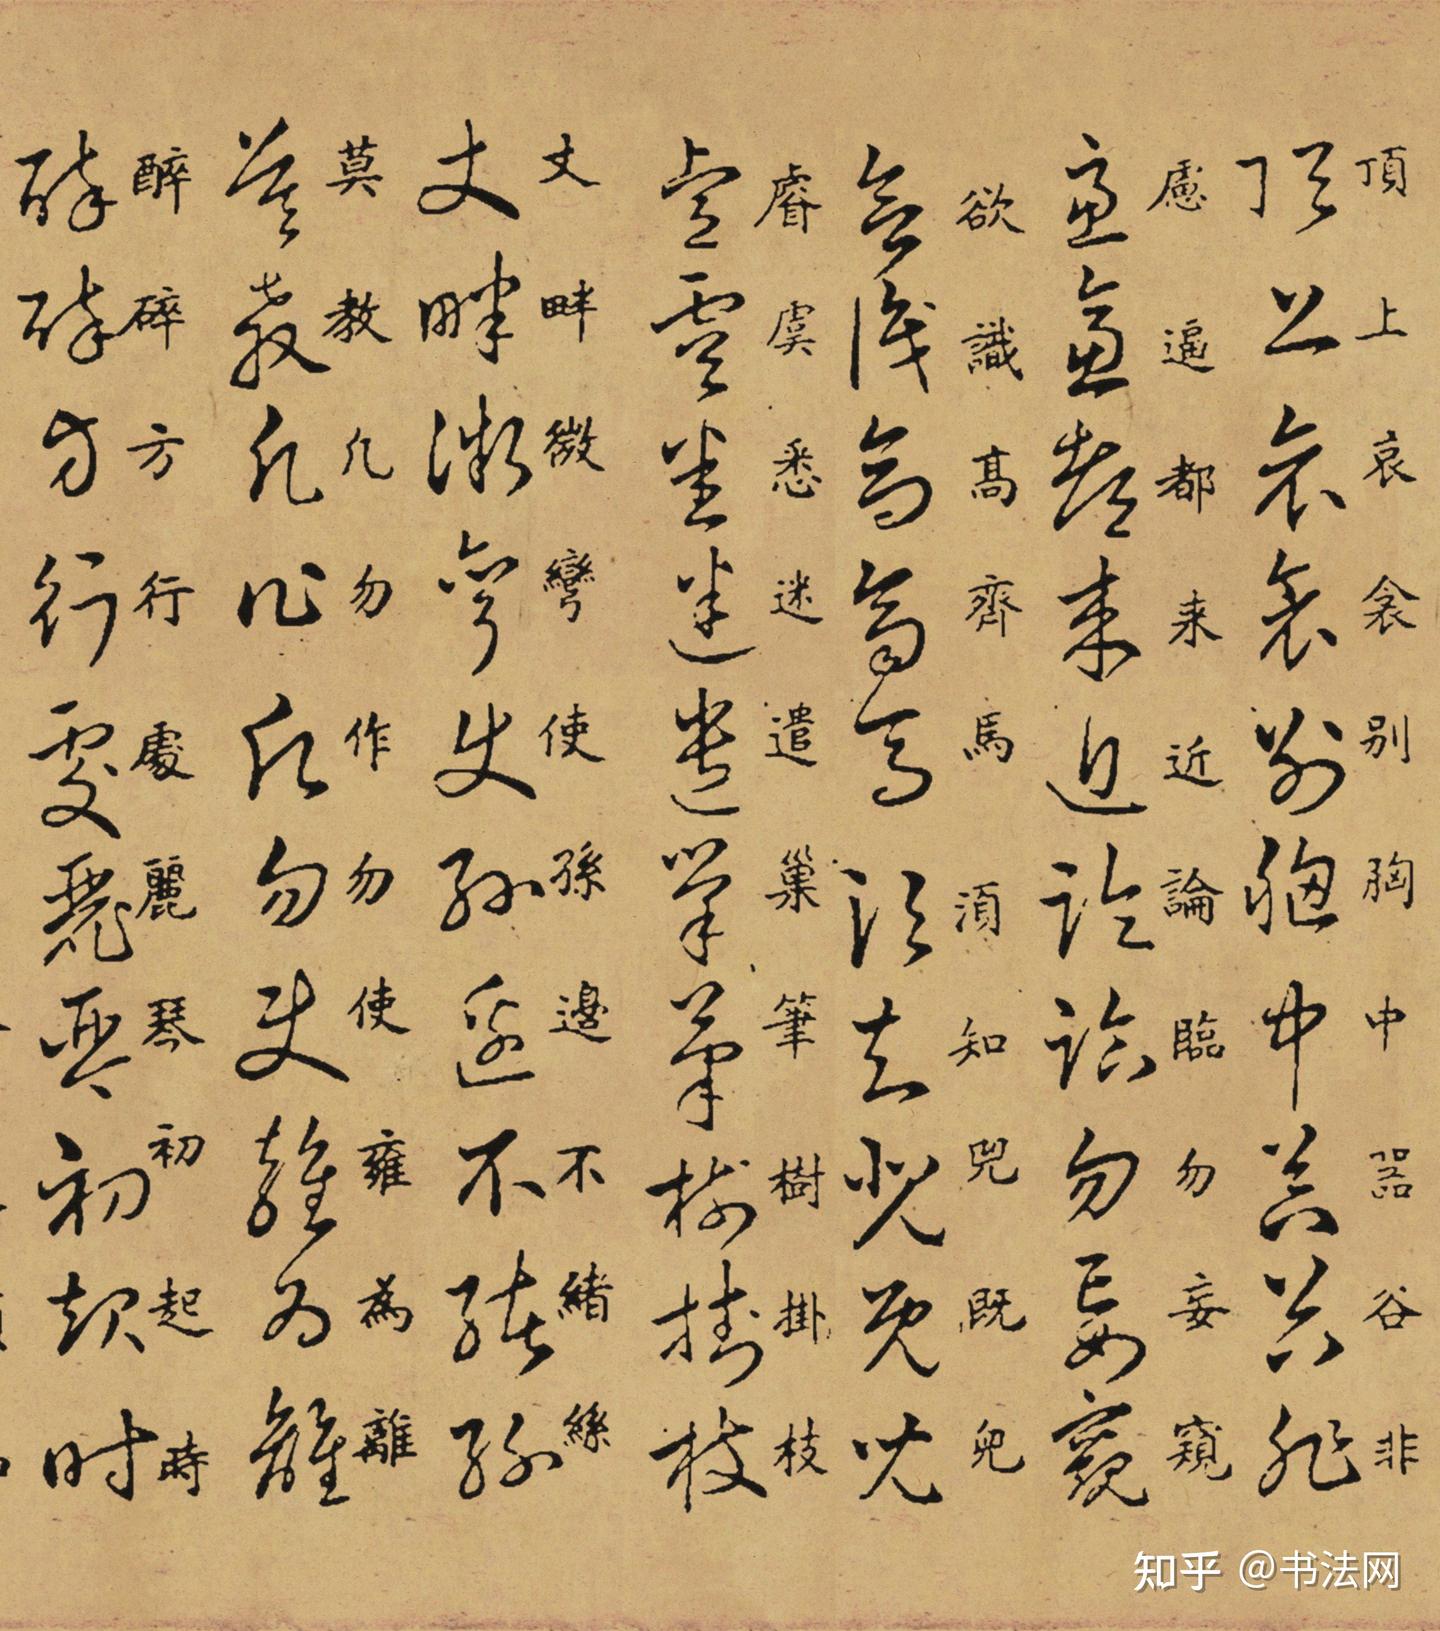 頂上哀衾别胸中器谷非
慮逼都来近論臨勿妄窺
欲識髙齊馬湏知兕既兕
睿虞悉迷遣巢筆樹掛枝
丈畔微彎使孫邊不緒絲
莫教凡勿作勿使雍為離
醉碎方行處麗琴初起時
知乎 @书法网